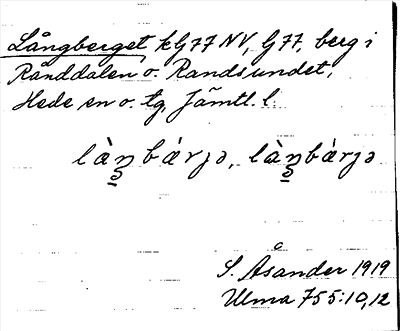 Långberget, kG77 NV, G77, berg i
Rånddalen o. Randsundet,
Hede sn o. tg, Jämtl. l.
làŋbárjə, làŋbàrjə
S. Åsander 1919
Ulma 755:10,12